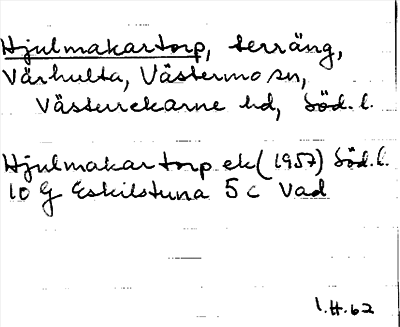 Hjulmakartorp, terräng,
Värhulta, Västermo sn,
Västerrekarne hd, Söd. l.
Hjulmakartorp ek (1957) Söd. l.
10 G Eskilstuna 5 c Vad
1.H.62